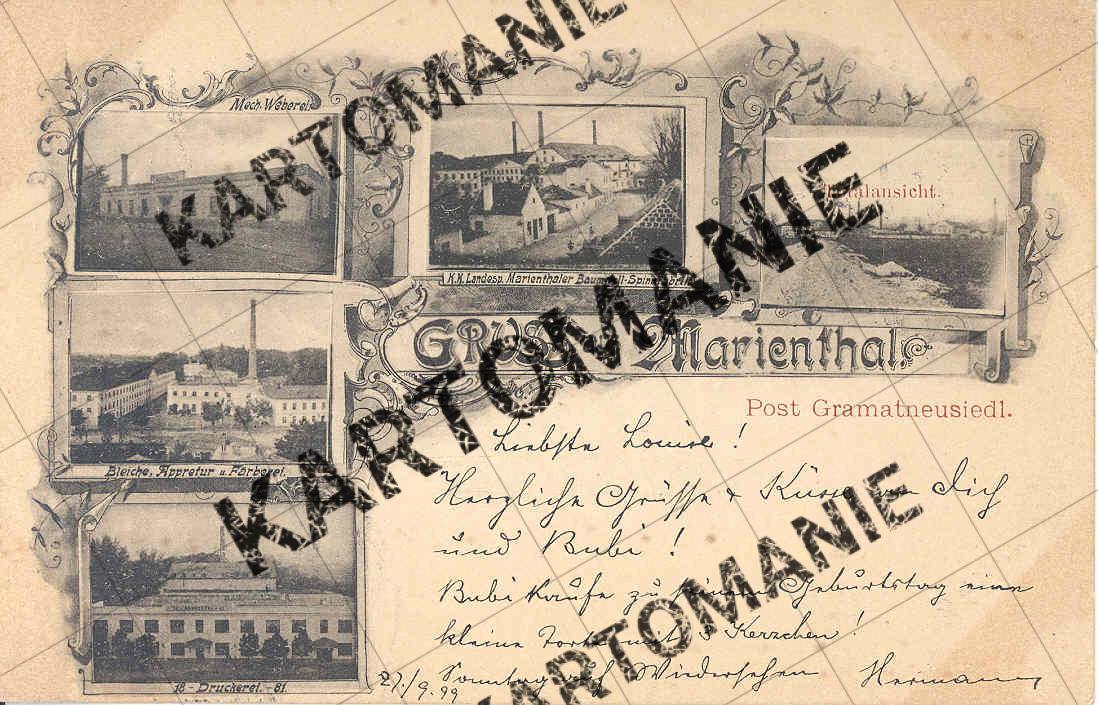 KARTOMANIE
Mech. Weberei.
K.K. Landesp. Marienthaler
Totalansicht.
KARTOMANIE
KARTOMANIE
GRUSS
Marienthal.
Post Gramatneusiedl.
Bleiche, Appretur u. Färberei.
Liebste Louise!
Herzliche Grüsse & Küsse an Dich
und Bubi!
Bubi kaufe zu seinem Geburtstag eine
kleine Torte mit 3 Kerzchen!
Sonntag auf Wiedersehen Hermann
27./9. 99
18 - Druckerei. - 61.
KARTOMANIE
KARTOMANIE